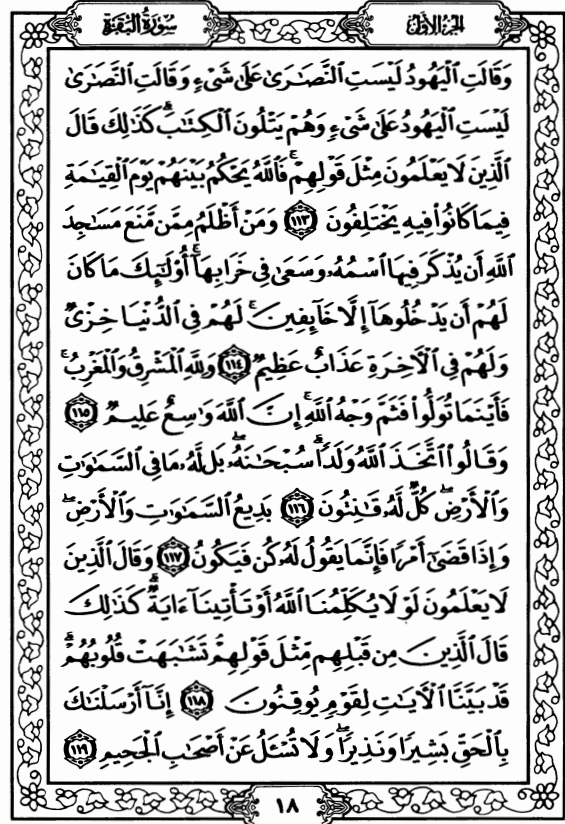 الجزء الأول
سورة البقرة
وَقَالَتِ ٱلْيَهُودُ لَيْسَتِ ٱلنَّصَٰرَىٰ عَلَىٰ شَىْءٍ وَقَالَتِ ٱلنَّصَٰرَىٰ
لَيْسَتِ ٱلْيَهُودُ عَلَىٰ شَىْءٍ وَهُمْ يَتْلُونَ ٱلْكِتَٰبَ ۗ كَذَٰلِكَ قَالَ
ٱلَّذِينَ لَا يَعْلَمُونَ مِثْلَ قَوْلِهِمْ ۚ فَٱللَّهُ يَحْكُمُ بَيْنَهُمْ يَوْمَ ٱلْقِيَٰمَةِ
فِيمَا كَانُوا۟ فِيهِ يَخْتَلِفُونَ ١١٣ وَمَنْ أَظْلَمُ مِمَّن مَّنَعَ مَسَٰجِدَ
ٱللَّهِ أَن يُذْكَرَ فِيهَا ٱسْمُهُۥ وَسَعَىٰ فِى خَرَابِهَآ ۚ أُو۟لَٰٓئِكَ مَا كَانَ
لَهُمْ أَن يَدْخُلُوهَآ إِلَّا خَآئِفِينَ ۚ لَهُمْ فِى ٱلدُّنْيَا خِزْىٌ
وَلَهُمْ فِى ٱلْءَاخِرَةِ عَذَابٌ عَظِيمٌ ١١٤ وَلِلَّهِ ٱلْمَشْرِقُ وَٱلْمَغْرِبُ ۚ
فَأَيْنَمَا تُوَلُّوا۟ فَثَمَّ وَجْهُ ٱللَّهِ ۚ إِنَّ ٱللَّهَ وَٰسِعٌ عَلِيمٌ ١١٥
وَقَالُوا۟ ٱتَّخَذَ ٱللَّهُ وَلَدًا ۗ سُبْحَٰنَهُۥ ۖ بَل لَّهُۥ مَا فِى ٱلسَّمَٰوَٰتِ
وَٱلْأَرْضِ ۖ كُلٌّ لَّهُۥ قَٰنِتُونَ ١١٦ بَدِيعُ ٱلسَّمَٰوَٰتِ وَٱلْأَرْضِ ۖ
وَإِذَا قَضَىٰٓ أَمْرًا فَإِنَّمَا يَقُولُ لَهُۥ كُن فَيَكُونُ ١١٧ وَقَالَ ٱلَّذِينَ
لَا يَعْلَمُونَ لَوْلَا يُكَلِّمُنَا ٱللَّهُ أَوْ تَأْتِينَآ ءَايَةٌ ۗ كَذَٰلِكَ
قَالَ ٱلَّذِينَ مِن قَبْلِهِم مِّثْلَ قَوْلِهِمْ ۘ تَشَٰبَهَتْ قُلُوبُهُمْ ۗ
قَدْ بَيَّنَّا ٱلْءَايَٰتِ لِقَوْمٍ يُوقِنُونَ ١١٨ إِنَّآ أَرْسَلْنَٰكَ
بِٱلْحَقِّ بَشِيرًا وَنَذِيرًا ۖ وَلَا تُسْـَٔلُ عَنْ أَصْحَٰبِ ٱلْجَحِيمِ ١١٩
١٨